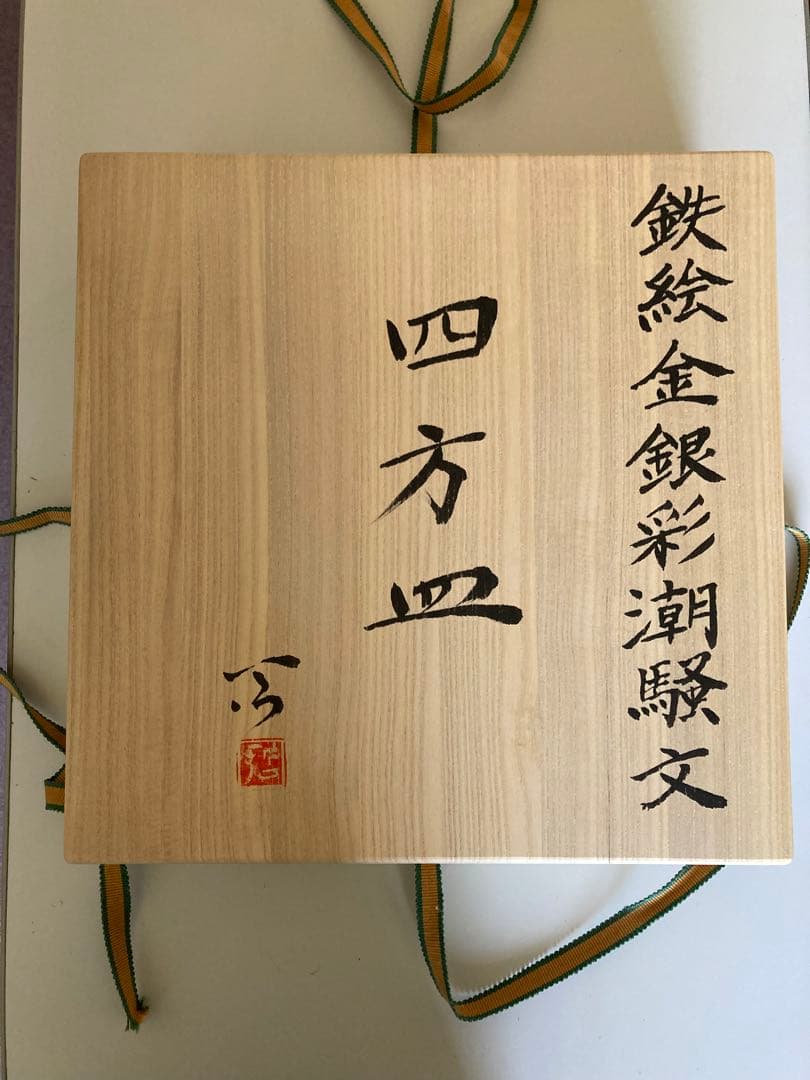 鉄絵金銀彩潮騒文
四方皿